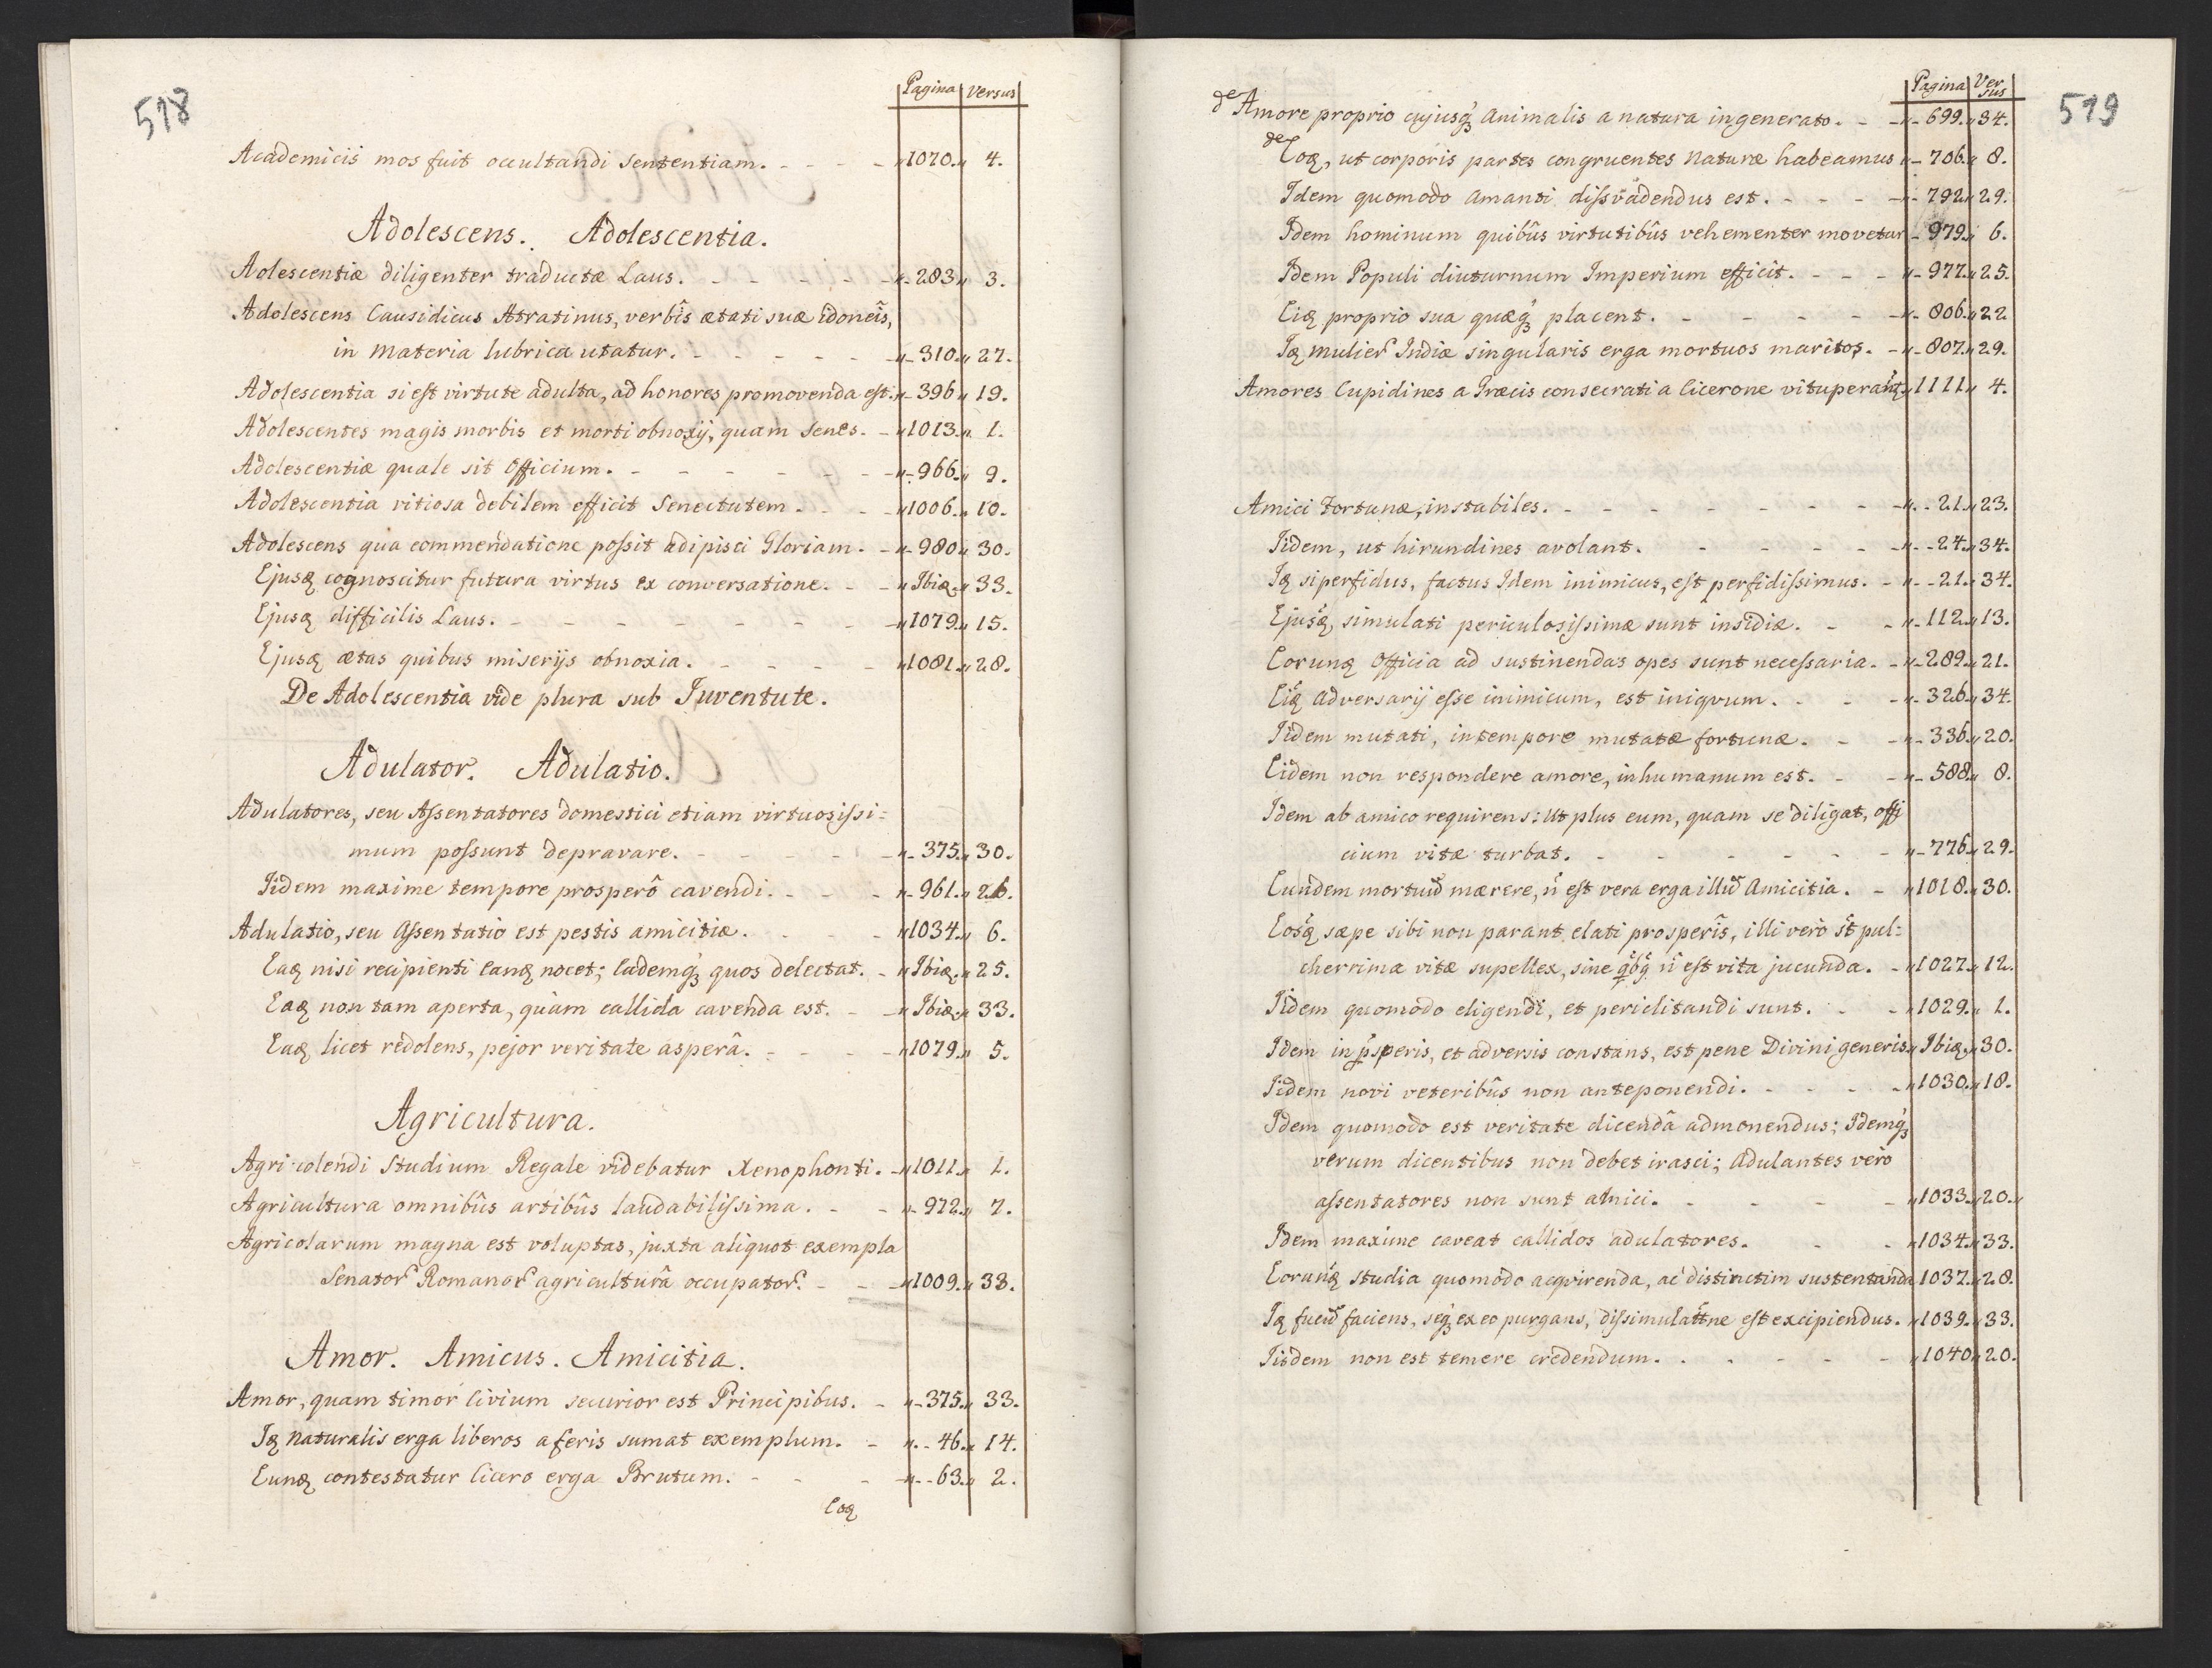 518
Pagina Versus
Academicis mos fuit occultandi sententiam. - - - - „1070.„ 4.
Adolescens. Adolescentia.
Adolescentiæ diligenter traductæ Laus. - - - - „-283„ 3.
Adolescens Causidicus Atratinus, verbîs ætati suæ idoneîs,
in materia lubrica utatur. - - - - - „-310.„ 27.
Adolescentia si est virtute adulta, ad honores promovenda est. „-396„ 19.
Adolescentes magis morbis et morti obnoxij, quam Senes. - „1013.„ 1.
Adolescentiæ quale sit Officium. - - - - - „-966.„ 9.
Adolescentia vitiosa debilem efficit Senectutem. - - - „1006.„ 10.
Adolescens qua commendatione possit adipisci Gloriam. - „-980„ 30.
Ejusq cognoscitur futura virtus ex conversatione. - - „Ibiq.„ 33.
Ejusq difficilis Laus. - - - - - - „1079.„ 15.
Ejusq ætas quibus miserijs obnoxia. - - - - „1081.„ 28.
De Adolescentia vide plura sub Juventute.
Adulator. Adulatio.
Adulatores, seu Assentatores domestici etiam virtuosissi=
mum possunt depravare. - - - - - „-375.„ 30.
Iidem maxime tempore prosperô cavendi. - - - „-961.„ 26.
Adulatio, seu Assentatio est pestis amicitiæ. - - - „1034.„ 6.
Eaq nisi recipienti eamq nocet; Eademq́ʒ quos delectat. - „Ibiq.„ 25.
Eaq non tam aperta, quàm callida cavenda est. - - „Ibiq.„ 33.
Eaq licet redolens, pejor veritate asperâ. - - - - „1079.„ 5.
Agricultura.
Agri colendi Studium Regale videbatur Xenophonti. - „1011.„ 1.
Agricultura omnibûs artibûs laudabilissima. - - „-972.„ 7.
Agricolarum magna est voluptas, juxta aliquot exempla
Senator̃ Romanor̃ agriculturâ occupator̃. - - „1009.„ 33.
Amor. Amicus. Amicitia.
Amor, quam timor Civium securior est Principibus. - „-375.„ 33.
Iq naturalis erga liberos a feris sumat exemplum. - „.-46.„ 14.
Eunq contestatur Cicero erga Brutum. - - - „--63.„ 2.
Eoq
519
Pagina Ver
sus
de Amore proprio cujusq́ʒ animalis a natura ingenerato. - - „-699.„34.
de Eoq, ut corporis partes congruentes Naturæ habeamus „-706.„ 8.
Idem quomodo amanti dissvadendus est. - - - - „-792„29.
Idem hominum quibûs virtutibûs vehementer movetur „-979.„ 6.
Idem Populi diuturnum Imperium efficit. - - - „-977.„25.
Eiq proprio sua quæq́ʒ placent. - - - - - „-806.„22
Iq mulier̃ Indiæ singularis erga mortuos maritos. - „-807.„29.
Amores Cupidines a Græcis consecrati a Cicerone vituperant̃. „1111„ 4.
Amici Fortunæ, instabiles. - - - - - - - „.-21.„23.
Iidem, ut hirundines avolant. - - - - - „--24.„34.
Iq si perfidus, factus Idem inimicus, est perfidissimus. - „--21.„34.
Ejusq́ simulati periculosissimæ sunt insidiæ. - - „-112.„13.
Eorunq Officia ad sustinendas opes sunt necessaria. - „-289.„21.
Eiq́ adversarij esse inimicum, est iniqvum. - - „-326.„34.
Iidem mutati, in tempore mutatæ fortunæ. - - „-336.„20.
Eidem non respondere amore, inhumanum est. - - „-588.„ 8.
Idem ab amico requirens: ut plus eum, quam se diligat, offi
cium vitæ turbat. - - - - - - „-776.„29.
Eundem mortuũ mærere, ñ est vera erga illũ amicitia. - „1018.„30.
Eosq́ sæpe sibi non parant elati prosperîs, illi verò st̃ pul=
cherrima vitæ supellex, sine q̃bq ñ est vita jucunda. - „1027.„12.
Iidem quomodo eligendi, et periclitandi sunt. - - „1029.„ 1.
Idem in p̃speris, et adversis constans, est pene Divini generis. „Ibiq.„30.
Iidem novi veteribûs non anteponendi. - - - - „1030.„18.
Idem quomodo est veritate dicendâ admonendus; Idemq́ʒ
verum dicentibus non debet irasci; adulantes verò
assentatores non sunt amici. - - - - - „1033.„20.„
Idem maxime caveat callidos adulatores. - - „1034.„33.
Eorunq́ studia quomodo acqvirenda, ac distinctim sustentanda 1037.„28.
Iq fucũ faciens, seq́ʒ ex eo purgans, dissimulãtne est excipiendus. „1039.„33.
Iisdem non est temere credendum. . - - - - „1040„20.